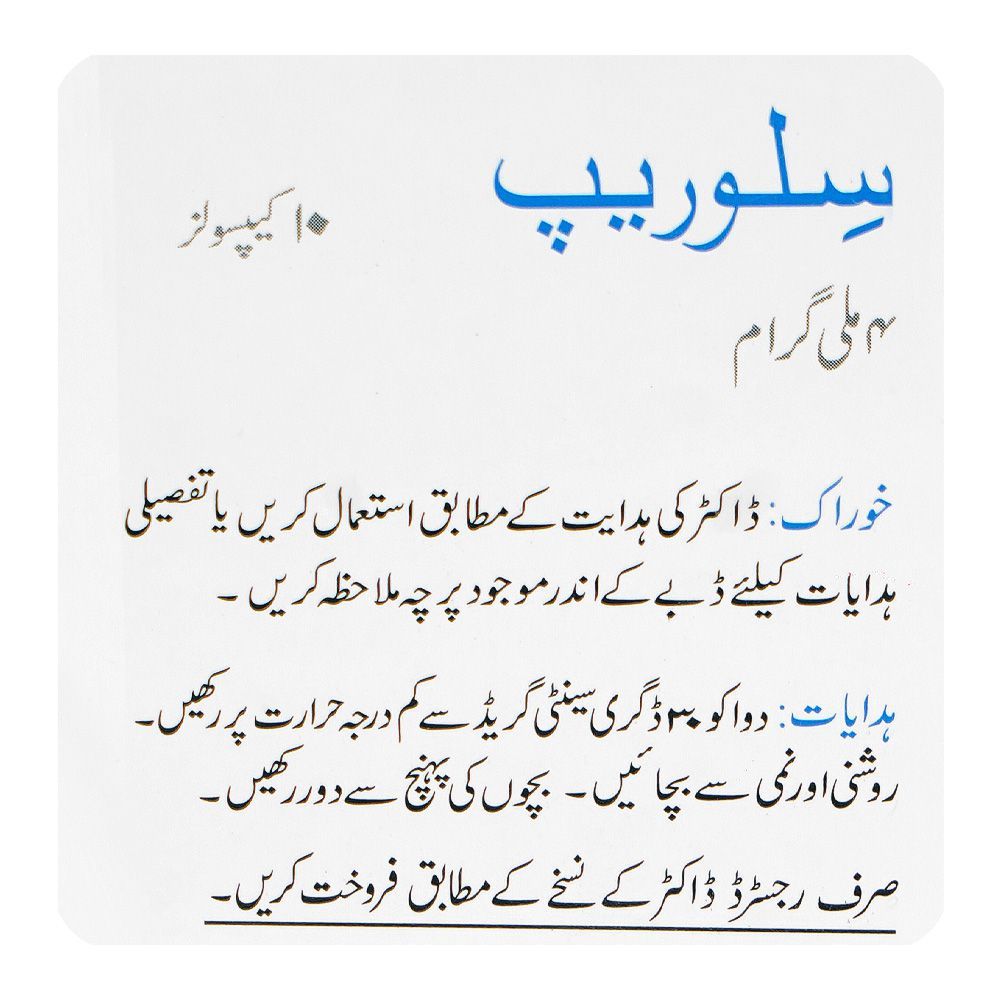 سِلوریپ
۱۰ کیپسولز
۴ ملی گرام
خوراک: ڈاکٹر کی ہدایت کے مطابق استعمال کریں یا تفصیلی
ہدایات کیلئے ڈبے کے اندر موجود پرچہ ملاحظہ کریں ۔
ہدایات: دوا کو ۳۰ ڈگری سینٹی گریڈ سے کم درجہ حرارت پر رکھیں۔
روشنی اور نمی سے بچائیں۔ بچوں کی پہنچ سے دور رکھیں۔
صرف رجسٹرڈ ڈاکٹر کے نسخے کے مطابق فروخت کریں۔